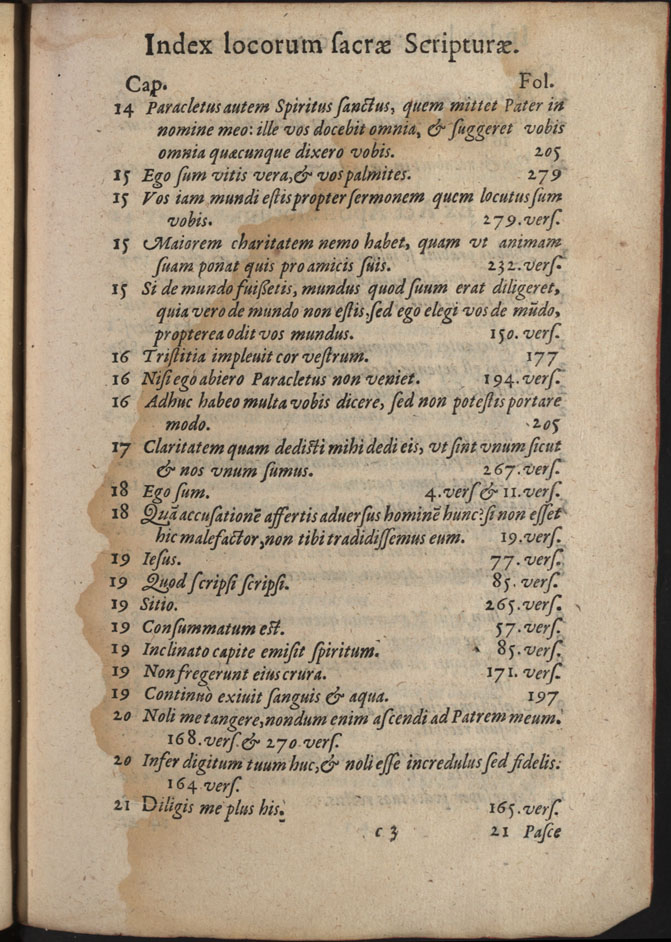 Index locorum ſacræ Scripturæ.
Cap. Fol.
14 Paracletus autem Spiritus ſanctus, quem mittet Pater in
nomine meo: ille vos docebit omnia, & ſuggeret vobis
omnia quæcunque dixero vobis. 205
15 Ego ſum vitis vera, & vos palmites. 279
15 Vos iam mundi eſtis propter ſermonem quem locutus ſum
vobis. 279. verſ.
15 Maiorem charitatem nemo habet, quam vt animam
ſuam ponat quis pro amicis ſuis. 232. verſ.
15 Si de mundo fuißetis, mundus quod ſuum erat diligeret,
quia vero de mundo non eſtis, ſed ego elegi vos de mũdo,
propterea odit vos mundus. 150. verſ.
16 Triſtitia impleuit cor veſtrum. 177
16 Niſi ego abiero Paracletus non veniet. 194. verſ.
16 Adhuc habeo multa vobis dicere, ſed non poteſtis portare
modo. 205
17 Claritatem quam dediſti mihi dedi eis, vt ſint vnum ſicut
& nos vnum ſumus. 267. verſ.
18 Ego ſum. 4. verſ & 11. verſ.
18 Quã accuſationẽ affertis aduerſus hominẽ hunc? ſi non eſſet
hic malefactor, non tibi tradidiſſemus eum. 19. verſ.
19 Ieſus. 77. verſ.
19 Quod ſcripſi ſcripſi. 85. verſ.
19 Sitio. 265. verſ.
19 Conſummatum eſt. 57. verſ.
19 Inclinato capite emiſit ſpiritum. 85. verſ.
19 Non fregerunt eius crura. 171. verſ.
19 Continuò exiuit ſanguis & aqua. 197
20 Noli me tangere, nondum enim aſcendi ad Patrem meum.
168. verſ. & 270 verſ.
20 Infer digitum tuum huc, & noli eſſe incredulus ſed fidelis.
164 verſ.
21 Diligis me plus his. 165. verſ.
c 3 21 Paſce